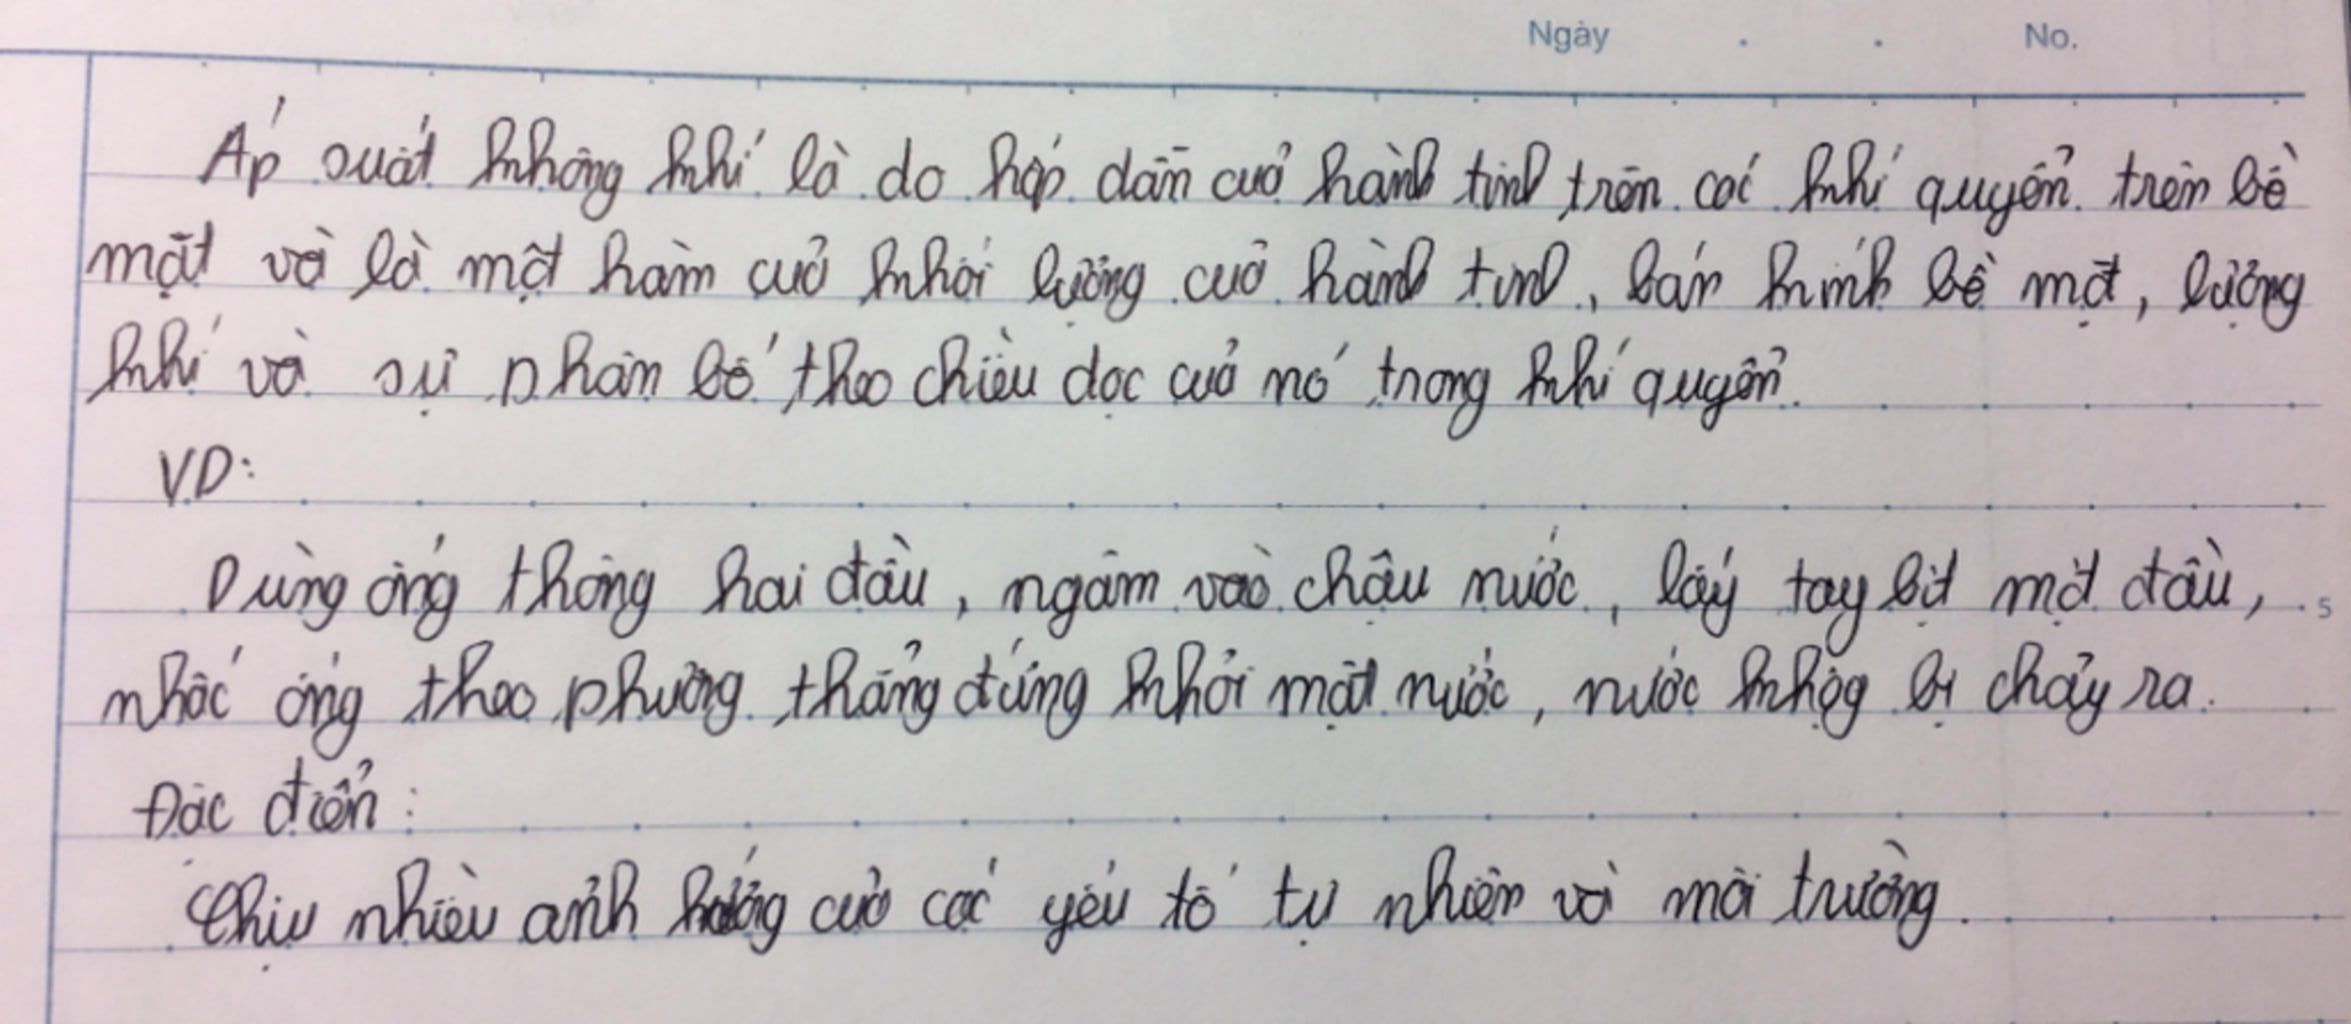 Ngày . . No.
Áp suất không khí là do hấp dẫn của hành tinh trên các khí quyển trên bề
mặt và là một hàm của khối lượng của hành tinh, bán kính bề mặt, lượng
khí và sự phân bố theo chiều dọc của nó trong khí quyển.
VD:
Dùng ống thông hai đầu, ngâm vào chậu nước, lấy tay bịt một đầu,
5
nhấc ống theo phương thẳng đứng khỏi mặt nước, nước không bị chảy ra.
Đặc điểm:
Chịu nhiều ảnh hưởng của các yếu tố tự nhiên và môi trường.